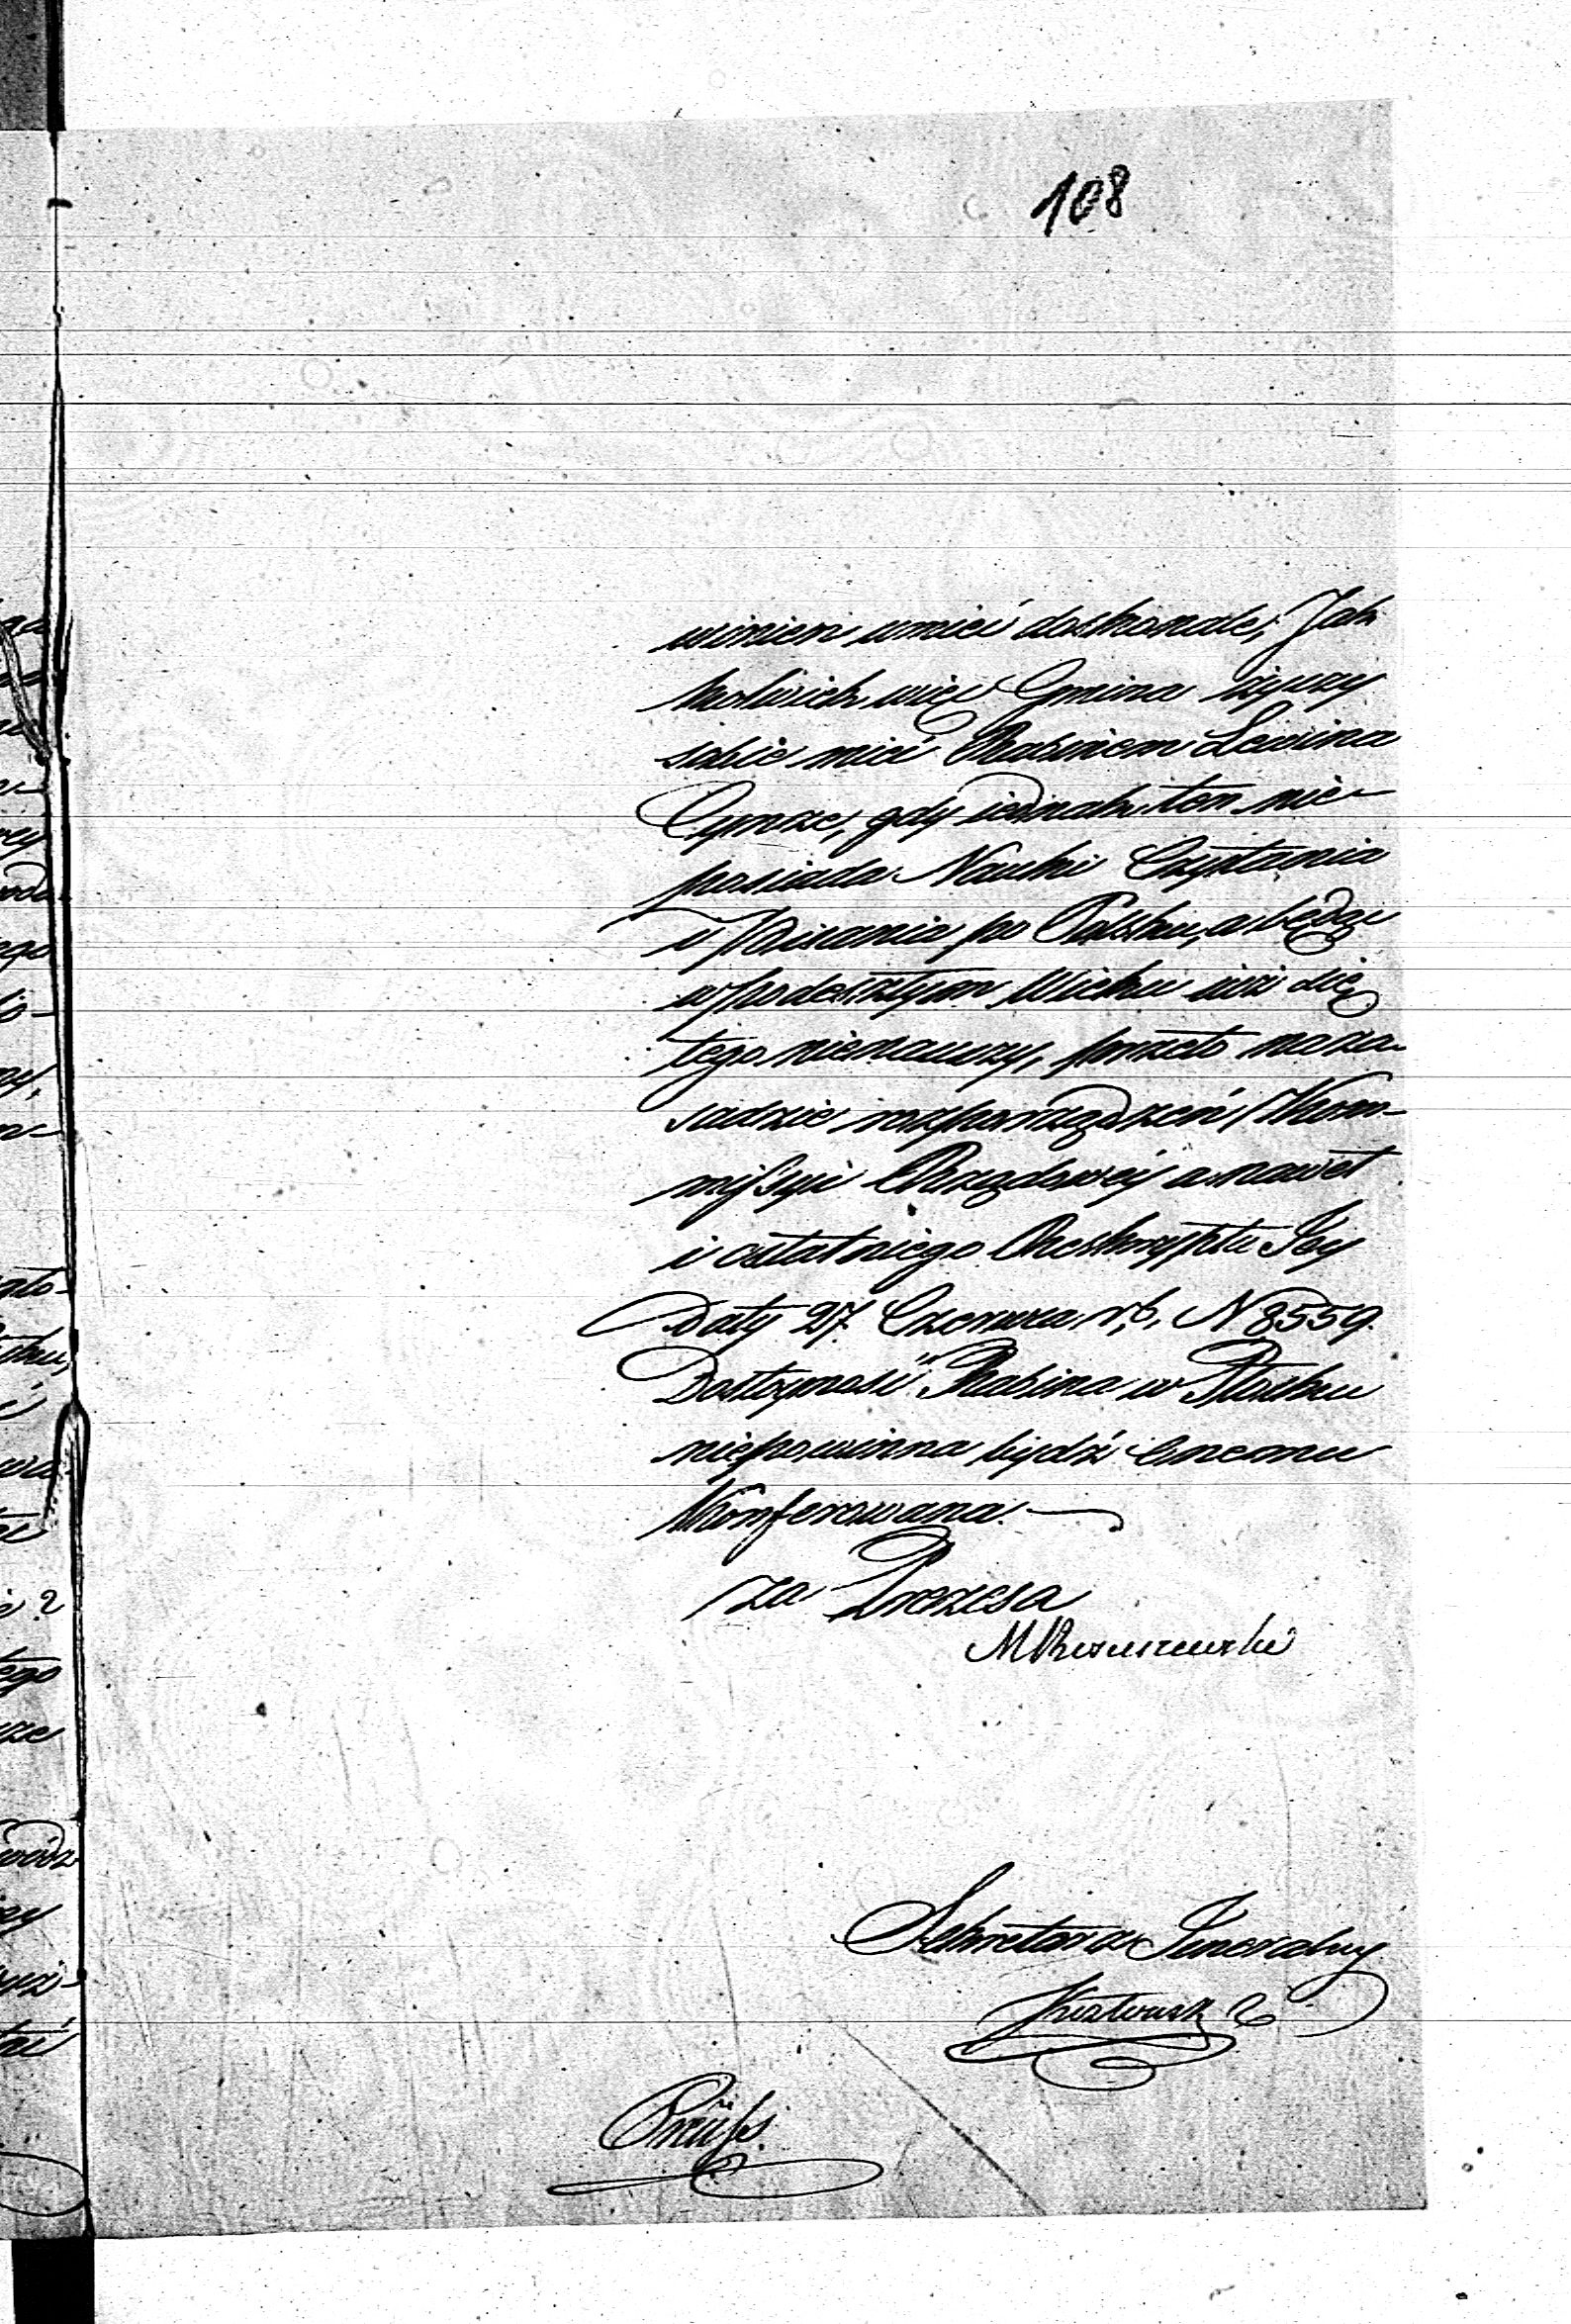 108
winien umieć doskonale; Jak
kolwiek więc Gmina życzy
sobie mieć Rabinem Lewina
Cymze, gdy iednak ten nie
posiada Nauki Czytania
i Pisania po Polsku, a będąc
w podeszłym Wieku iuż się
tego nienauczy, przeto na za-
sadzie rozporządzeń Kom-
mifsyi Rządowéy a nawet
i ostatniego Reskryptu Jey
Daty 27 Czerwca r. b. N 8559.
Dostoyność Rabina w Płocku
niepowinna bydź Onemu
Konferowana.
za Prezesa
Sekretarz Jeneralny
Preüfs.